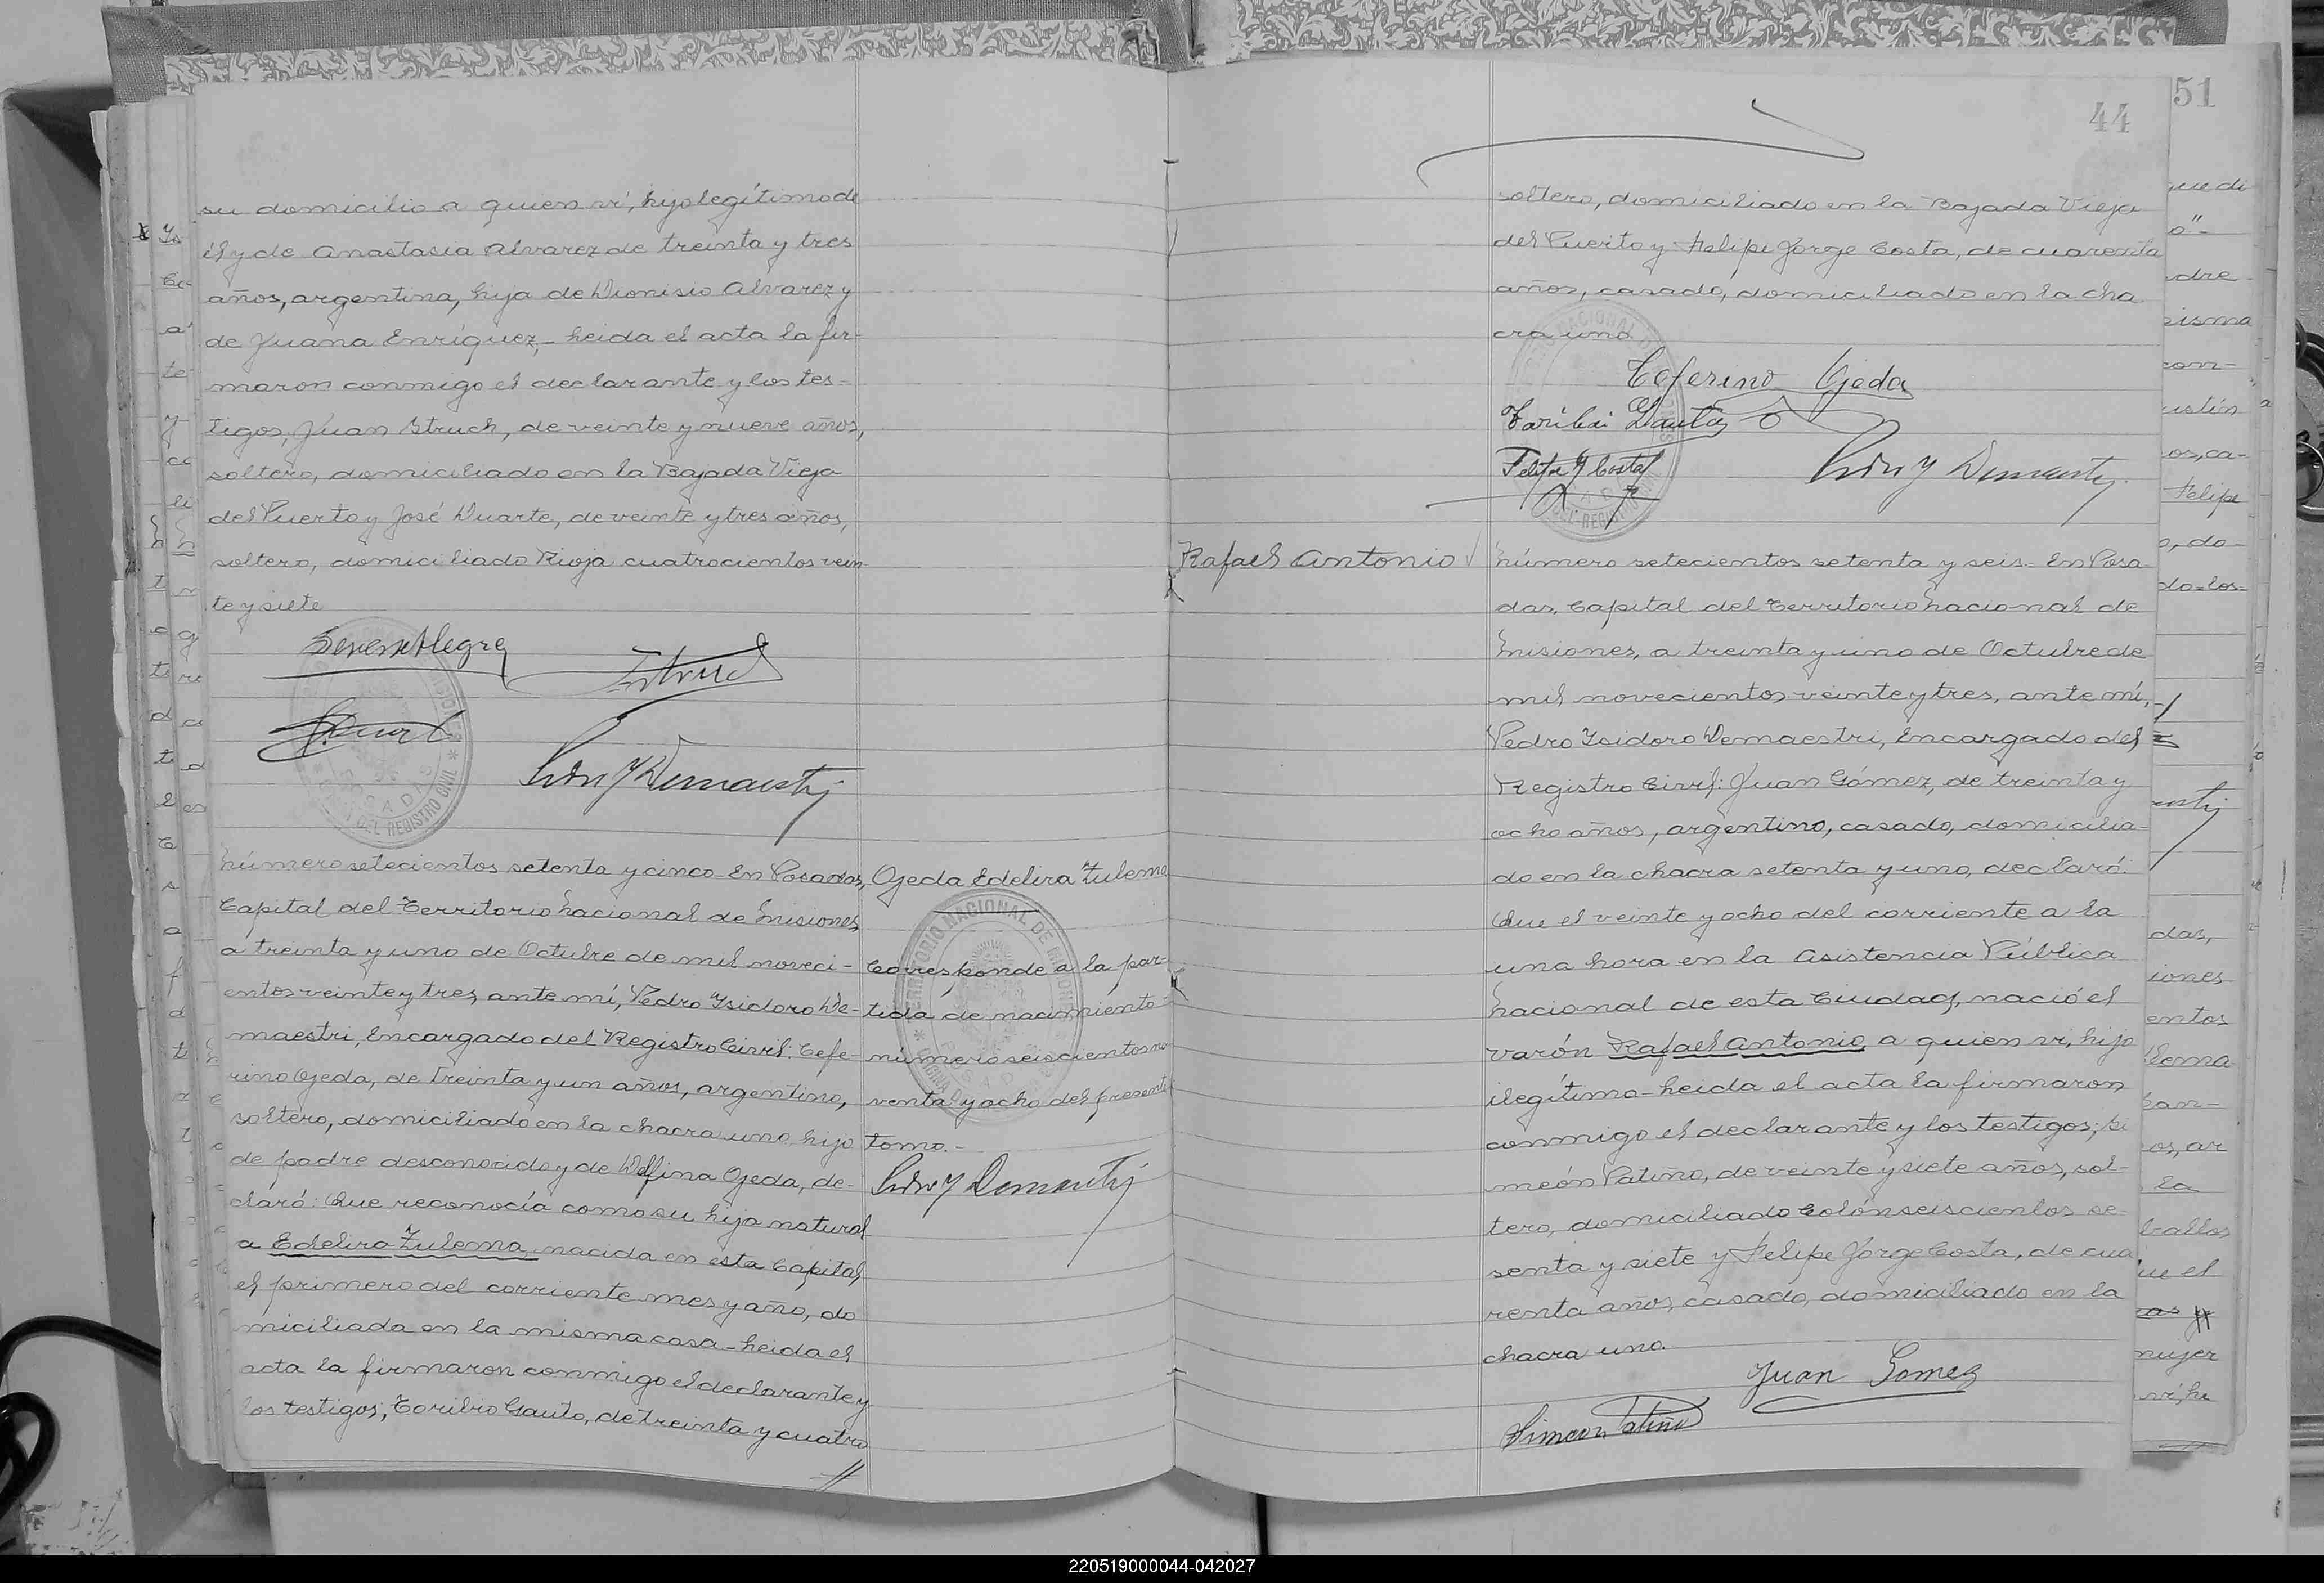 su domicilio a quien ví, hijo legítimo de
él y de Anastasia Alvarez de treinta y tres
años, argentina, hija de Dionisio Alvarez y
de Juana Enríquez,- Leida el acta la fir-
maron conmigo el declarante y los tes-
tigos, Juan Struch, de veinte y nueve años,
soltero, domiciliado en la Bajada Vieja
del Puerto y José Duarte, de veinte y tres años,
soltero, domiciliado Rioja cuatrocientos vein-
te y siete
Número setecientos setenta y cinco- En Posadas,
Capital del Territorio Nacional de Misiones,
a treinta y uno de Octubre de mil noveci-
entos veinte y tres, ante mí, Pedro Isidoro De-
maestri, Encargado del Registro Civil: Cefe-
rino Ojeda, de treinta y un años, argentino,
soltero, domiciliado en la chacra uno, hijo
de padre desconocido y de Delfina Ojeda, de-
claró: Que reconocía como su hija natural
a Edelira Zulema, nacida en esta Capital,
el primero del corriente mes y año, do
miciliada en la misma casa- Leida el
acta la firmaron conmigo el declarante y
los testigos; Toribio Gauto, de treinta y cuatro
//
Ojeda Edelira Zulema
TERRITORIO NACIONAL DE MISIONES
Corresponde a la par-
tida de nacimiento
número seiscientos no
venta y ocho del presente
tomo.-
44
soltero, domiciliado en la Bajada Vieja
del Puerto y Felipe Jorge Costa, de cuarenta
años, casado, domiciliado en la cha
cra uno.
Ceferino Ojeda
Felipe J Costa
Rafael Antonio
Número setecientos setenta y seis- En Posa
das, Capital del Territorio Nacional de
Misiones, a treinta y uno de Octubre de
mil novecientos veinte y tres, ante mí,
Pedro Isidoro Demaestri, Encargado del
Registro Civil: Juan Gómez, de treinta y
ocho años, argentino, casado, domicilia-
do en la chacra setenta y uno, declaró:
Que el veinte y ocho del corriente a la
una hora en la Asistencia Pública
Nacional de esta Ciudad, nació el
varón Rafael Antonio, a quien ví, hijo
ilegítimo- Leida el acta la firmaron
conmigo el declarante y los testigos; Si
meón Patiño, de veinte y siete años, sol-
tero, domiciliado Colón seiscientos se-
senta y siete y Felipe Jorge Costa, de cua
renta años, casado, domiciliado en la
chacra uno.
Juan Gomez
Simeon Patiño
51
220519000044-042027